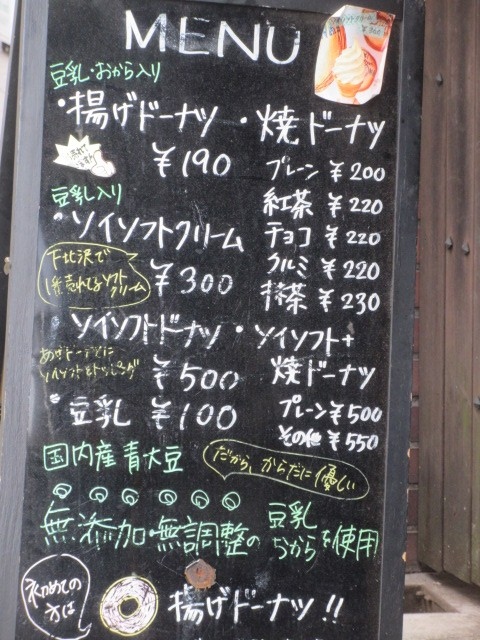 MENU
豆乳・おから入り
・揚げドーナツ
¥190
・焼ドーナツ
プレーン ¥200
紅茶 ¥220
チョコ ¥220
クルミ ¥220
抹茶 ¥230
豆乳入り
・ソイソフトクリーム
下北沢で
売れてるソフト
クリーム
¥300
・ソイソフトドーナツ
ソイソフトをトッピング
¥500
・ソイソフト+
焼ドーナツ
プレーン ¥500
その他 ¥550
・豆乳 ¥100
国内産青大豆
だから、からだに優しい
無添加・無調整の豆乳
おからを使用
初めての
方は
揚げドーナツ!!